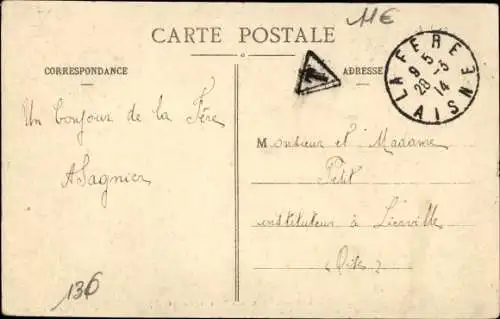 11€
CARTE POSTALE
CORRESPONDANCE
ADRESSE
T
LA FÈRE
9 5
28 -5
14
AISNE
Un bonjour de la Fère
A Sagnier
Monsieur et Madame
Petit
instituteur à
(Oise)
136